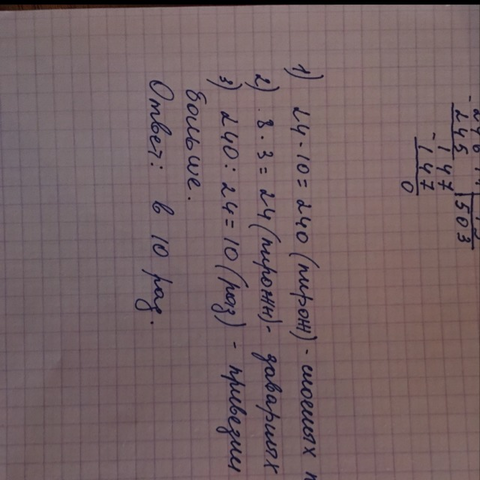 245
147
147
0
503
1) 24·10=240 (пирож)-слоеных
2) 8·3=24 (пирожн)-
3) 240:24=10 (раз) - привезли
больше.
Ответ: в 10 раз.